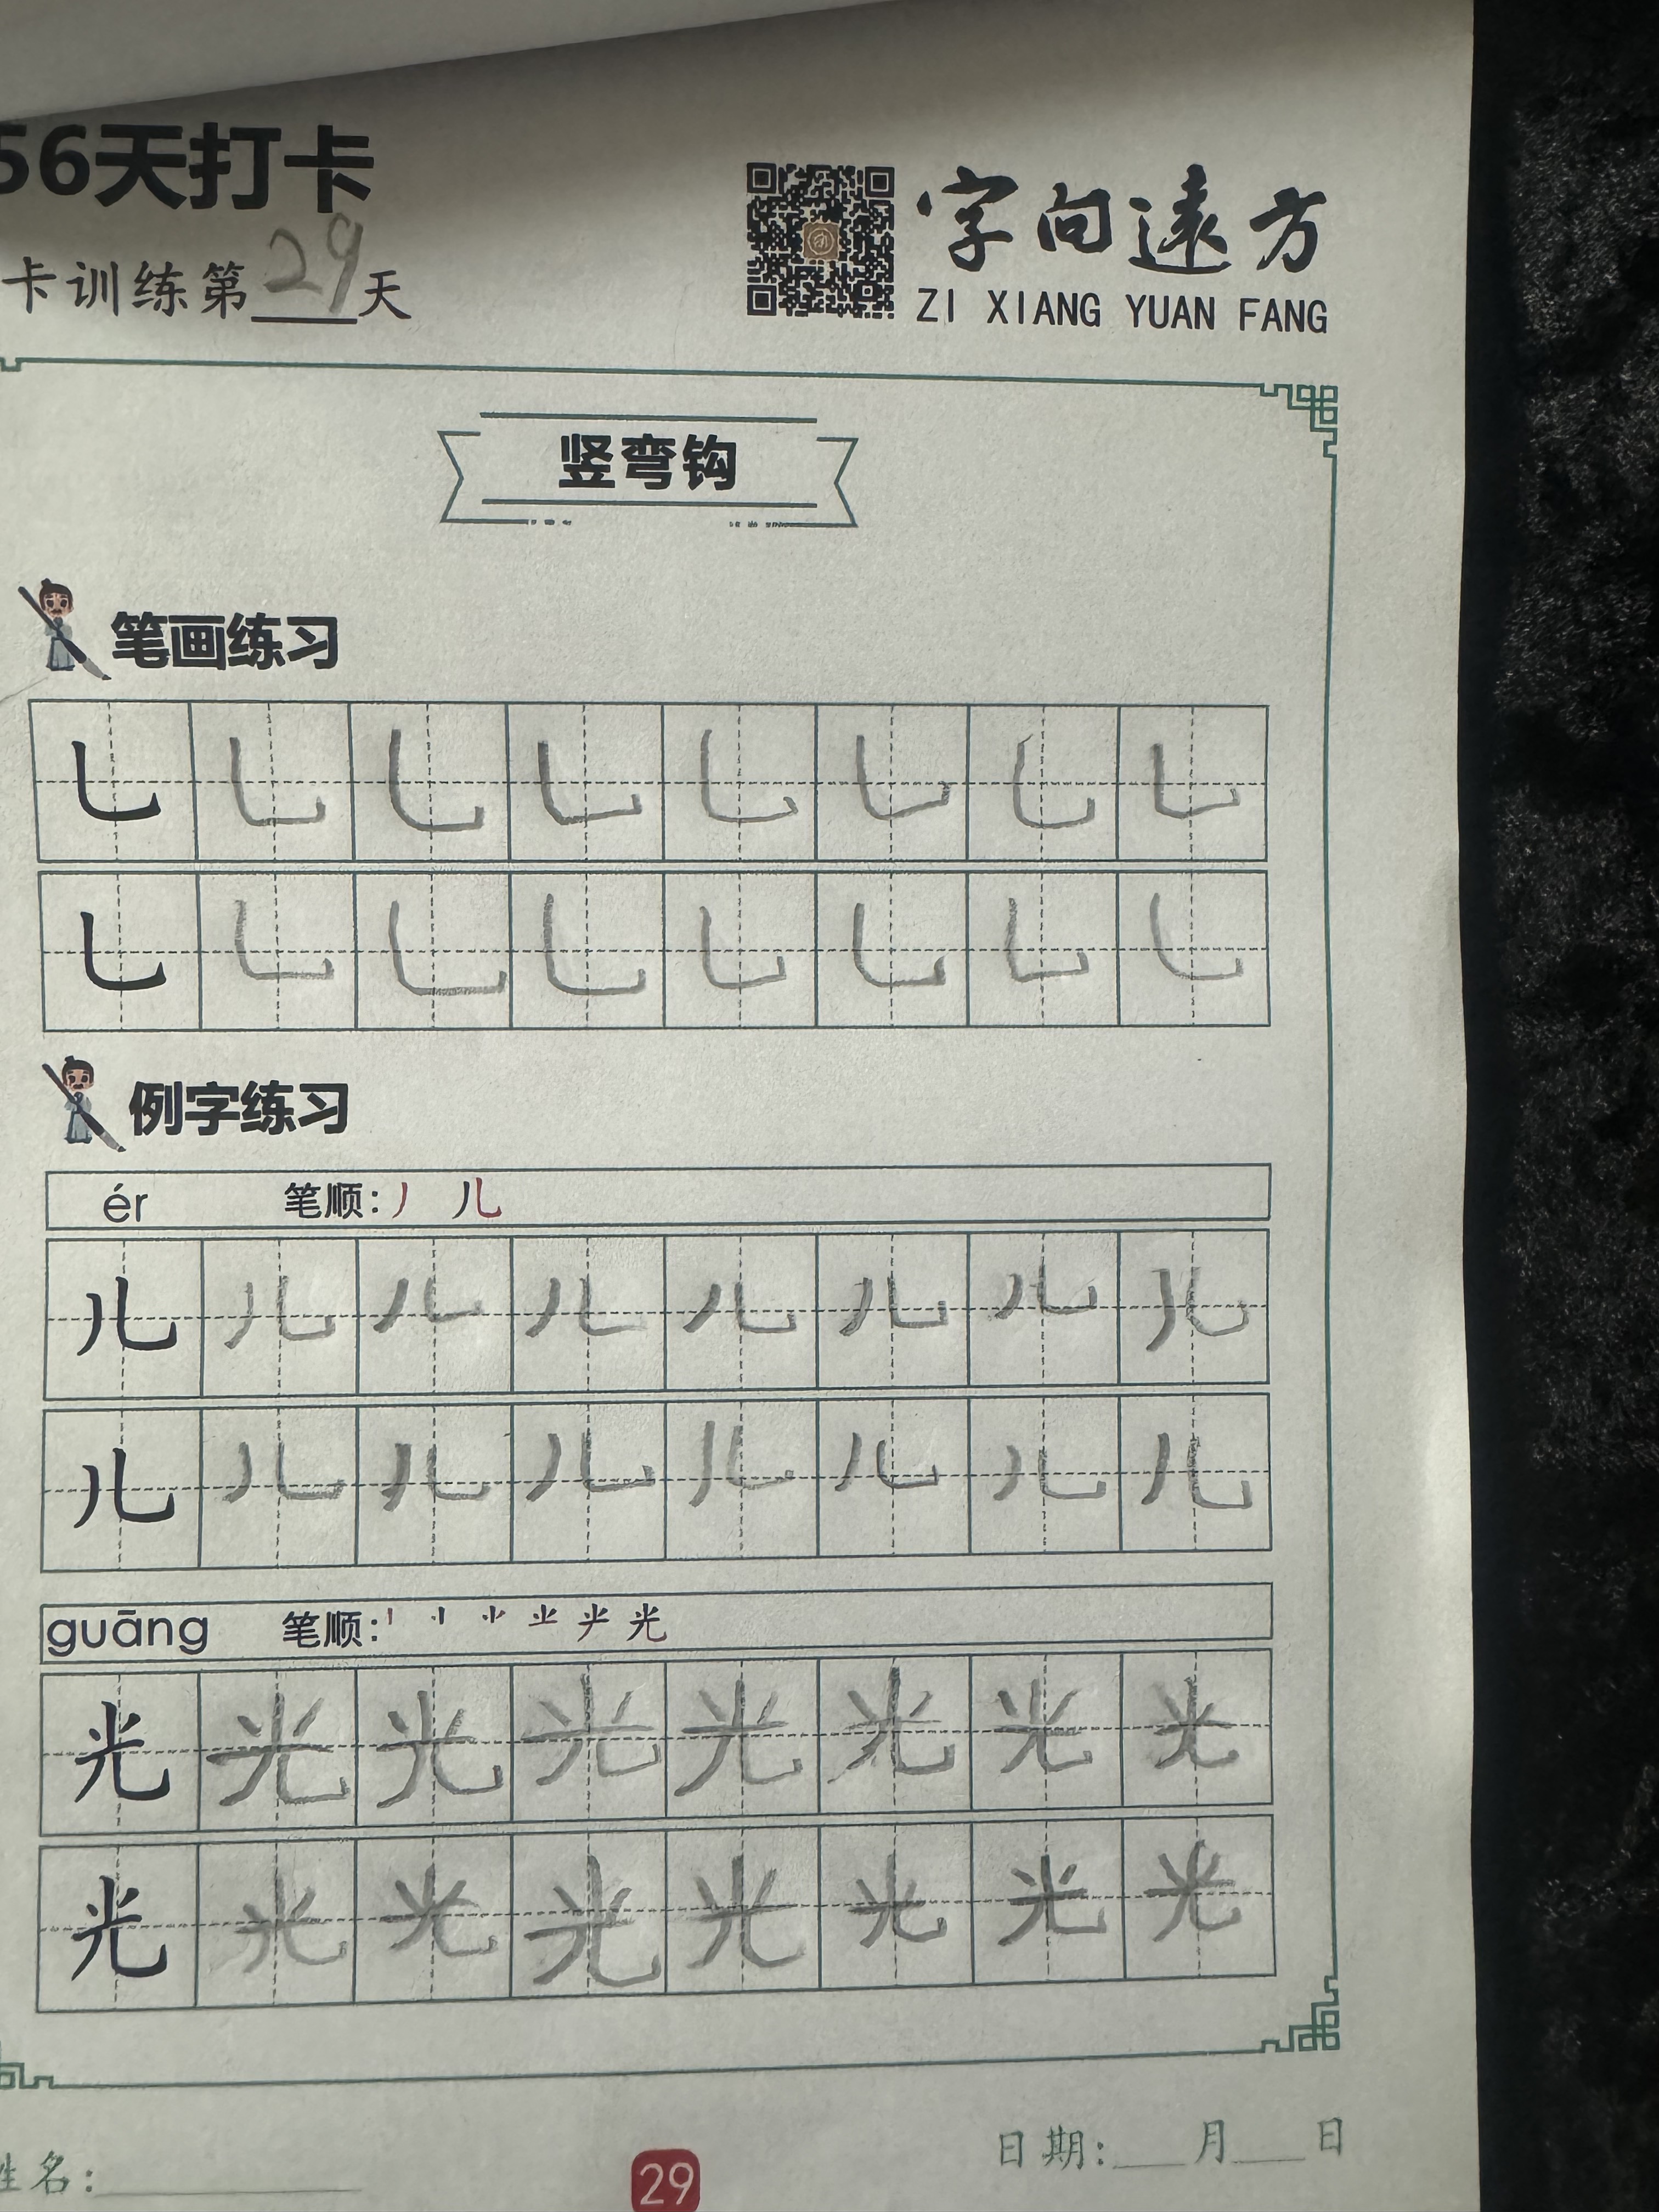 56天打卡
字向遠方
卡训练第29天
ZI XIANG YUAN FANG
竖弯钩
笔画练习
乚 乚 乚 乚 乚 乚 乚 乚
乚 乚 乚 乚 乚 乚 乚 乚
例字练习
ér 笔顺: 丿 儿
儿 儿 儿 儿 儿 儿 儿 儿
儿 儿 儿 儿 儿 儿 儿 儿
guāng 笔顺: 光
光 光 光 光 光 光 光 光
光 光 光 光 光 光 光 光
姓名:
29
日期: 月 日